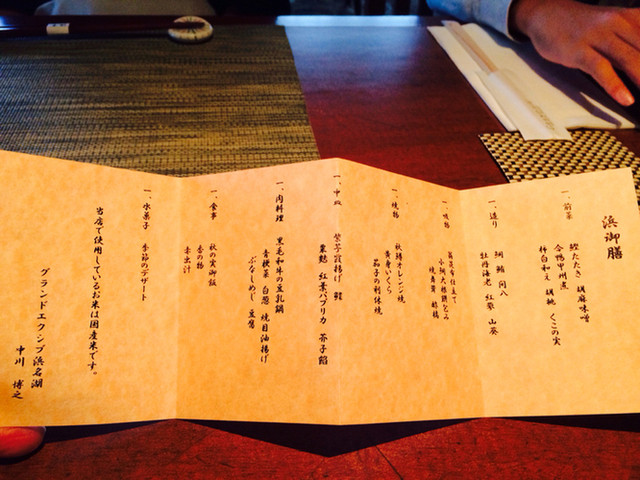 浜御膳
一、前菜
鰹たたき 胡麻味噌
合鴨甲州煮
柿白和え 胡桃 くこの実
一、造り
鯛 鮪 間八
牡丹海老 紅蓼 山葵
一、焼物
秋鮭オレンジ焼
黄身いくら
茄子の利休焼
一、中皿
紫芋霞揚げ 鱧
粟麩 紅葉パプリカ 芥子餡
一、肉料理
黒毛和牛の豆乳鍋
青梗菜 白葱 焼目油揚げ
ぶなしめじ 豆腐
一、食事
秋の実御飯
香の物
赤出汁
一、水菓子
季節のデザート
当店で使用しているお米は国産米です。
グランドエクシブ浜名湖
中川 博之